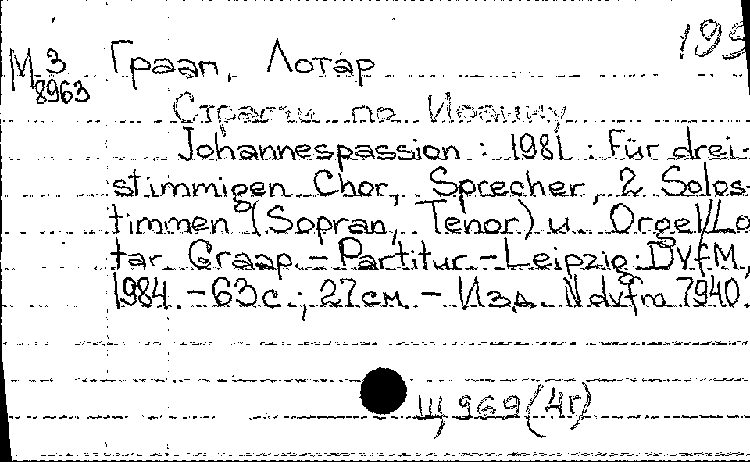 195
М 3
8963
Граап, Лотар
Страсти по Иоанну
Johannespassion : 1981 : Für drei-
stimmigen Chor, Sprecher, 2 Solos-
timmen (Sopran, Tenor) u. Orgel/Lo
tar Graap. – Partitur. – Leipzig: DVfM,
1984. – 63 с.; 27 см. – Изд. N dvfm 7940.
Щ 969(4Г)